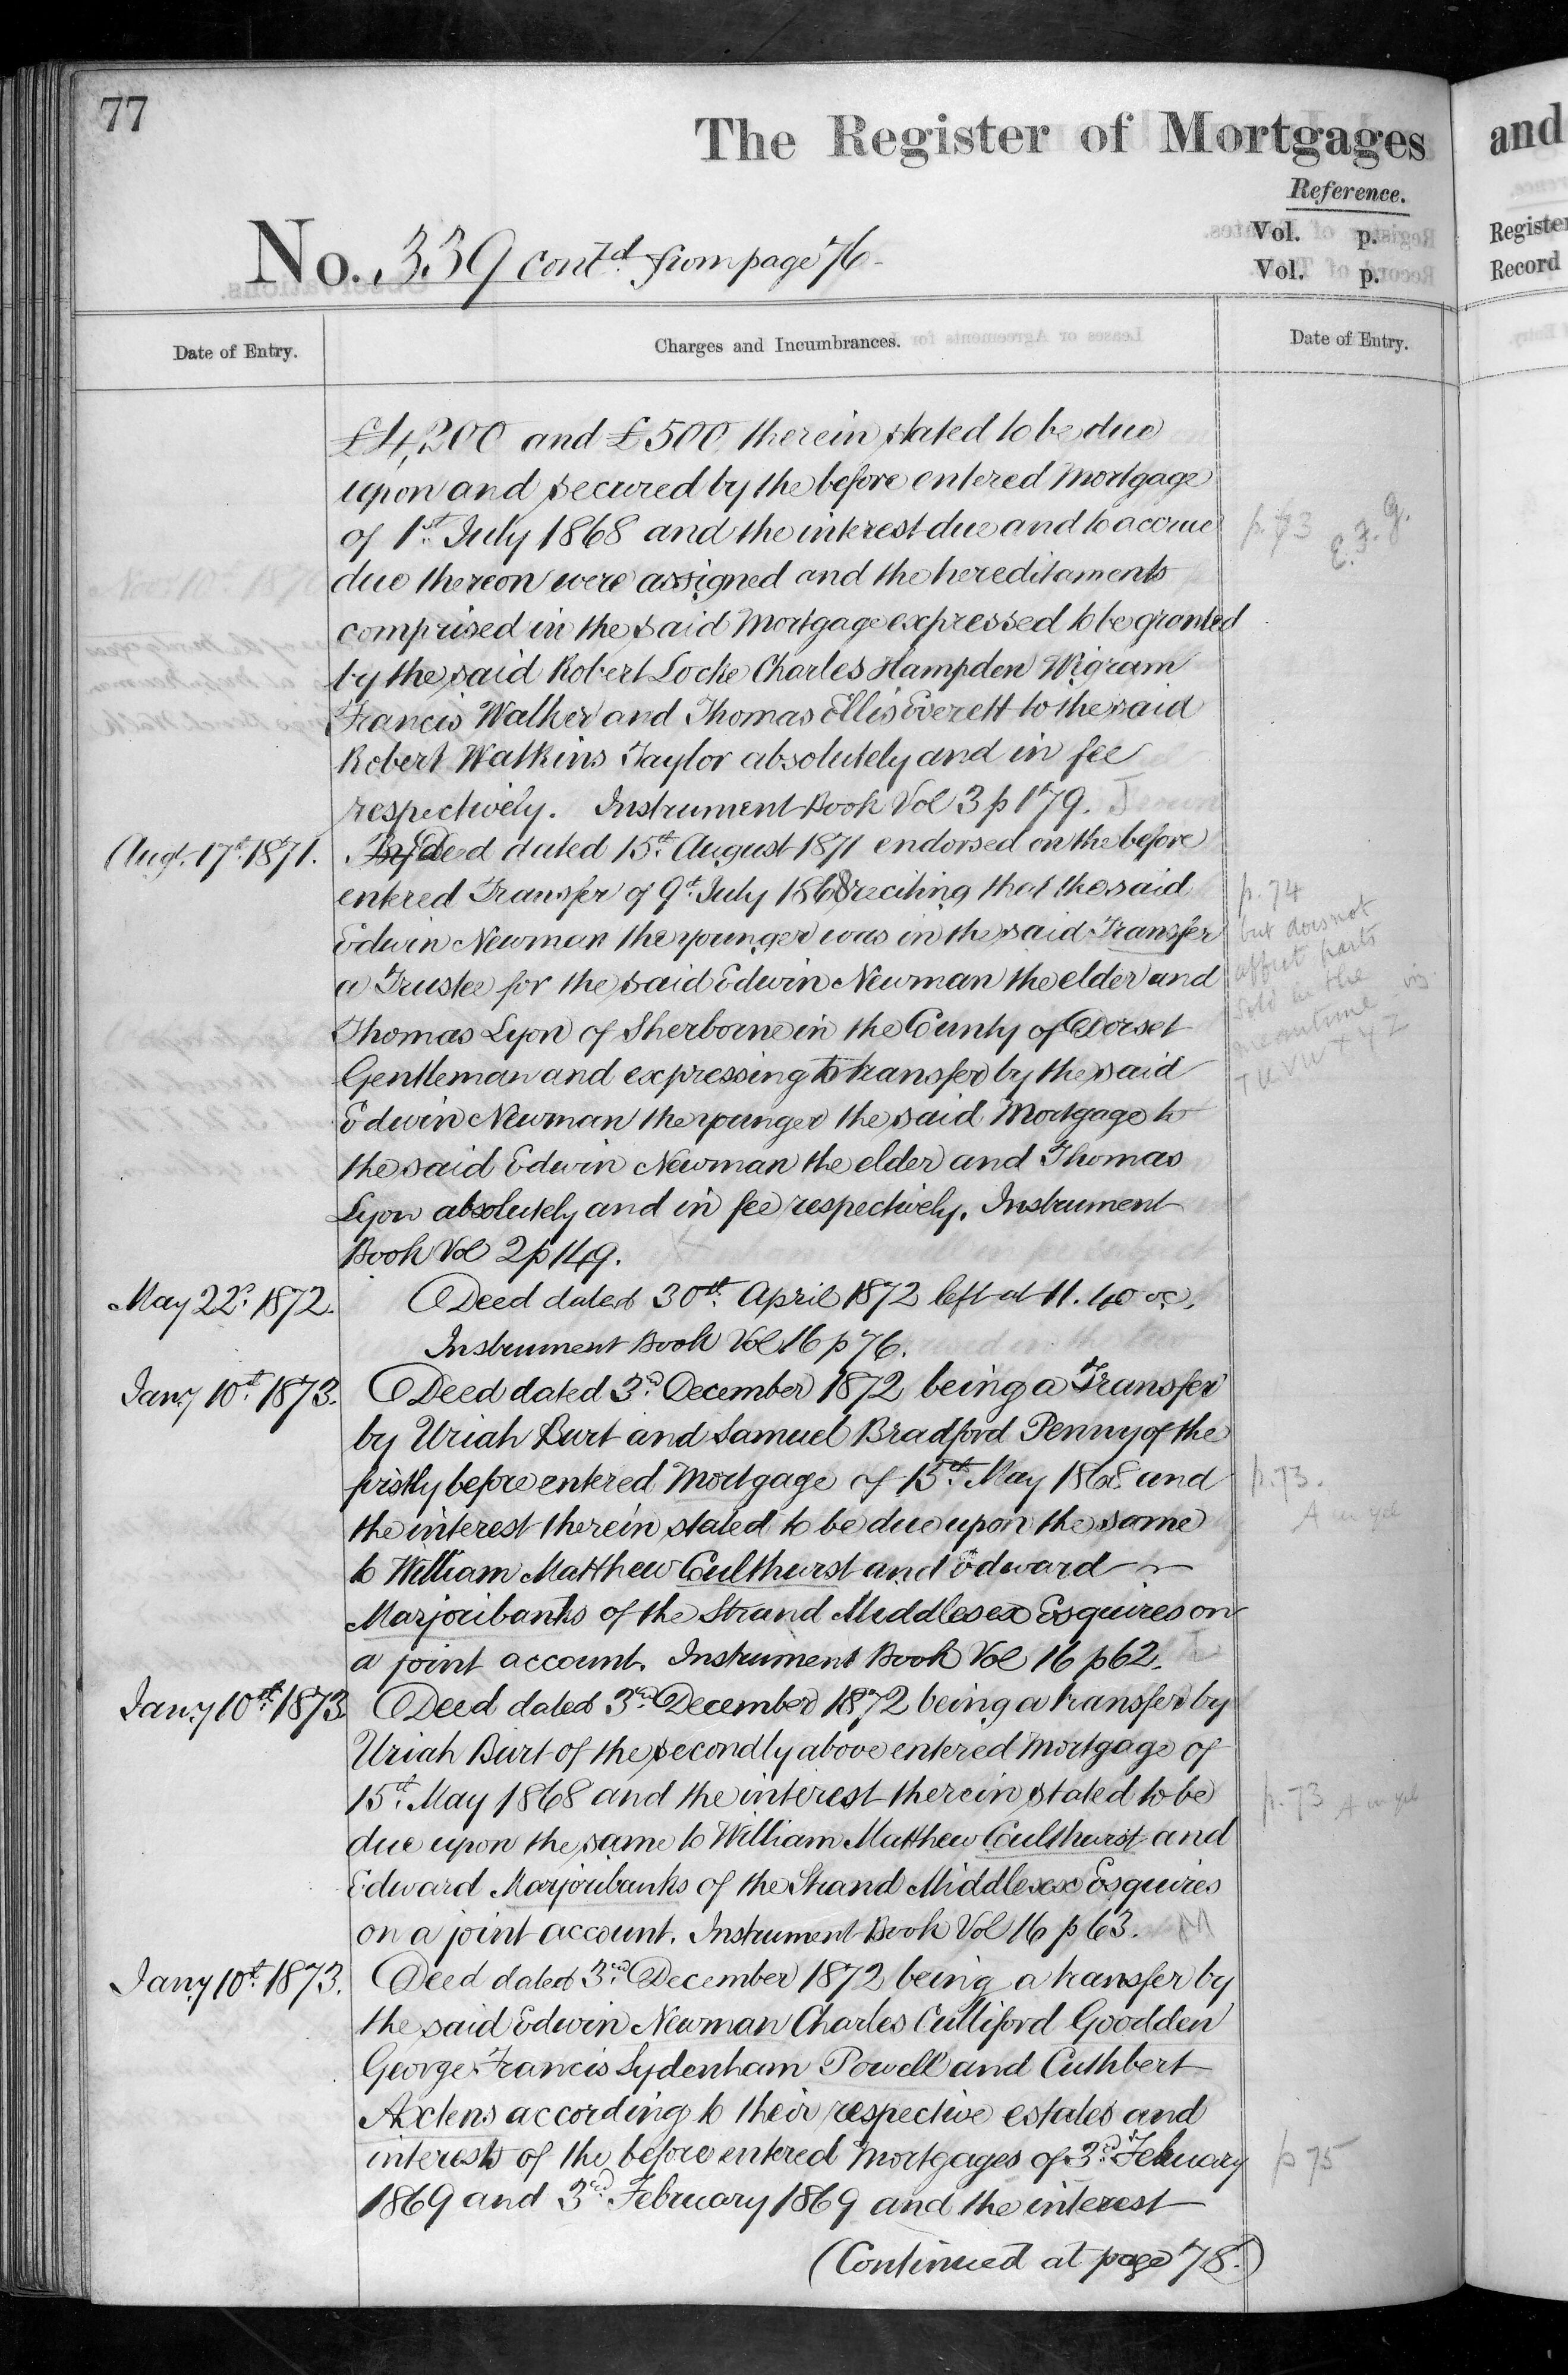 77
The Register of Mortgages
and
Reference.
Vol. p.
Vol. p.
No. 339 contd. from page 76
Register
Record
Date of Entry.
Charges and Incumbrances.
Date of Entry.
£4,200 and £500 therein stated to be due
upon and secured by the before entered Mortgage
of 1st. July 1868 and the interest due and to accrue
p. 73 E. F. G.
due thereon were assigned and the hereditaments
comprised in the said Mortgage expressed to be granted
by the said Robert Locke Charles Hampden Wigram
Francis Walker and Thomas Ellis Everett to the said
Robert Watkins Taylor absolutely and in fee
respectively. Instrument Book Vol 3 p 179.
Augt. 17th. 1871. Deed dated 15th. August 1871 endorsed on the before
entered Transfer of 9th. July 1868 reciting that the said
p. 74
Edwin Newman the younger was in the said Transfer
but does not
a Trustee for the said Edwin Newman the elder and
affect parts
Thomas Lyon of Sherborne in the County of Dorset
sold in the
Gentleman and expressing to transfer by the said
meantime viz.
T U V W X Y Z
Edwin Newman the younger the said Mortgage to
the said Edwin Newman the elder and Thomas
Lyon absolutely and in fee respectively. Instrument
Book Vol 2 p 149.
May 22d. 1872. Deed dated 30th. April 1872 left at 11.40
Instrument Book Vol 16 p 76.
Jany 10th. 1873. Deed dated 3rd. December 1872 being a Transfer
by Uriah Burt and Samuel Bradford Penny of the
firstly before entered Mortgage of 15th. May 1868 and
p. 73.
the interest therein stated to be due upon the same
A in yel
to William Matthew Coulthurst and Edward
Marjoribanks of the Strand Middlesex Esquires on
a joint account. Instrument Book Vol 16 p 62.
Jany 10th. 1873 Deed dated 3rd. December 1872 being a transfer by
Uriah Burt of the secondly above entered Mortgage of
15th. May 1868 and the interest therein stated to be
p. 73 A in yel
due upon the same to William Matthew Coulthurst and
Edward Marjoribanks of the Strand Middlesex Esquires
on a joint account. Instrument Book Vol 16 p 63.
Jany 10th. 1873. Deed dated 3rd. December 1872 being a transfer by
the said Edwin Newman Charles Culliford Goodden
George Francis Sydenham Powell and Cuthbert
Axtens according to their respective estates and
interests of the before entered Mortgages of 3rd. February
p 75
1869 and 3rd. February 1869 and the interest
(Continued at page 78.)